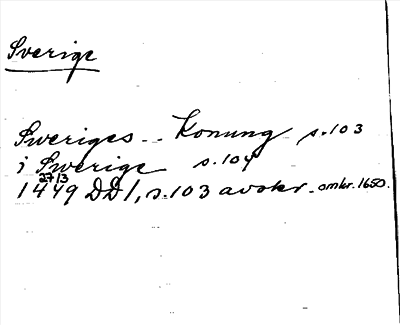 Sverige
Sweriges -- Konung s. 103
i Swerige s. 104
1449 27/3 DD1, s. 103 avskr. omkr. 1650.